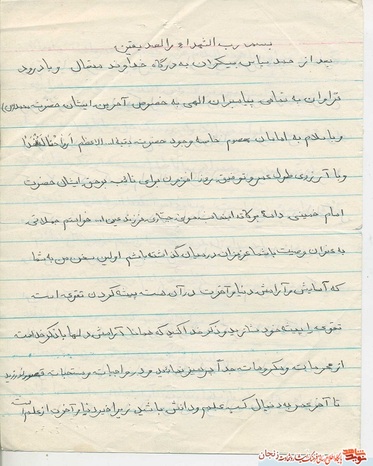 بسم رب الشهداء و الصدیقین
بعد از حمد و سپاس بیکران به درگاه خداوند متعال و با درود
فراوان به تمامی پیامبران الهی به خصوص آخرین ایشان حضرت محمد(ص)
و با سلام به امامان معصوم خاصه وجود حضرت بقیة الله الاعظم ارواحنا له الفداء
و با آرزوی طول عمر و توفیق روز افزون برای نائب برحق ایشان حضرت
امام خمینی دامة برکاته اینجانب فرزند می خواهم جملاتی
به عنوان وصیت با شما عزیزان در میان گذاشته باشم اولین سخن من به شما
که آسایش و آرامش دنیا و آخرت در آن است پیشه کردن تقوی است
تقوی را پیشه خود سازید و ذکر خدا کنید که همانا آرامش دلها با ذکر خداست
از محرمات و مکروهات جداً پرهیز نمایید و در واجبات و مستحبات قصور نورزید
تا آخر عمر به دنبال کسب علم و دانش باشید زیرا خیر دنیا و آخرت از علم است